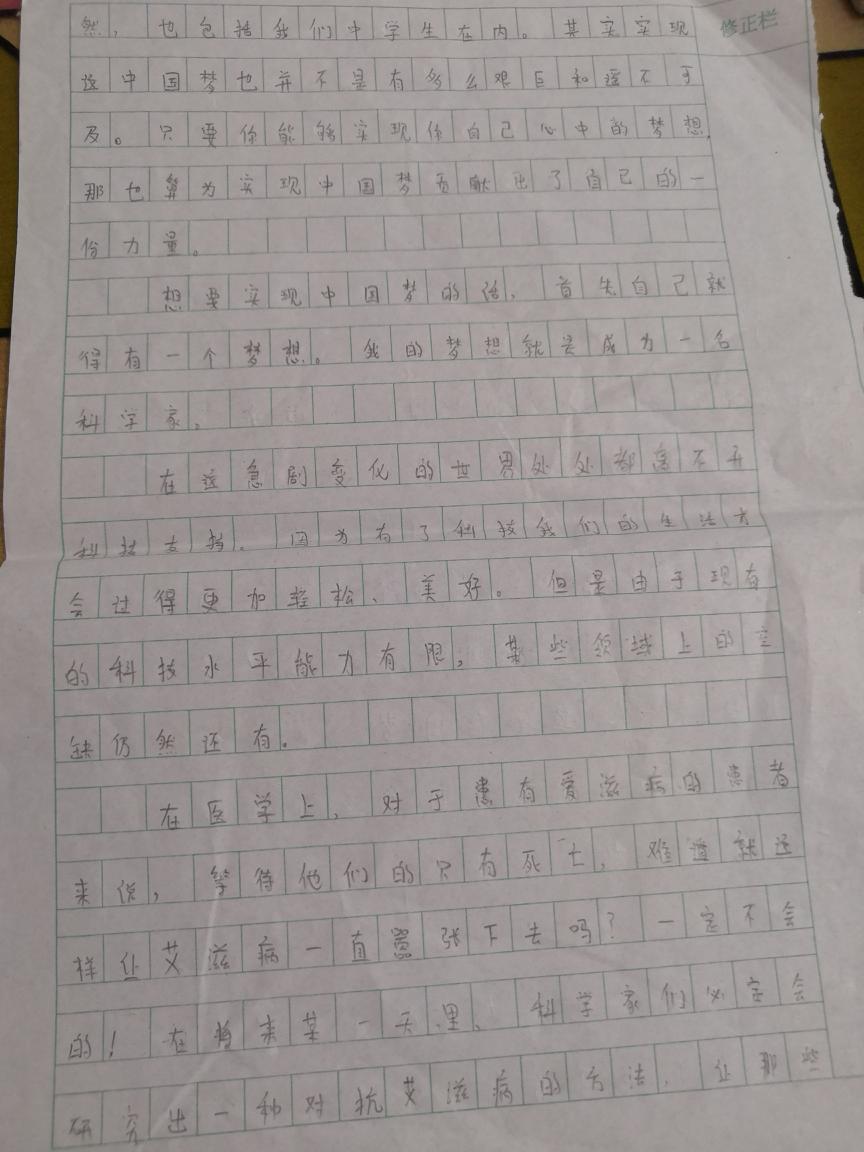 然，也包括我们中学生在内。其实实现
修正栏
这中国梦也并不是有多么艰巨和遥不可
及。只要你能够实现你自己心中的梦想，
那也算为实现中国梦贡献出了自己的一
份力量。
想要实现中国梦的话，首先自己就
得有一个梦想。我的梦想就是成为一名
科学家。
在这急剧变化的世界处处都离不开
科技支持。因为有了科技我们的生活才
会过得更加轻松、美好。但是由于现有
的科技水平能力有限，某些领域上的空
缺仍然还有。
在医学上，对于患有爱滋病的患者
来说，等待他们的只有死亡，难道就这
样让艾滋病一直嚣张下去吗？一定不会
的！在将来某一天里，科学家们必定会
研究出一种对抗艾滋病的方法，让那些